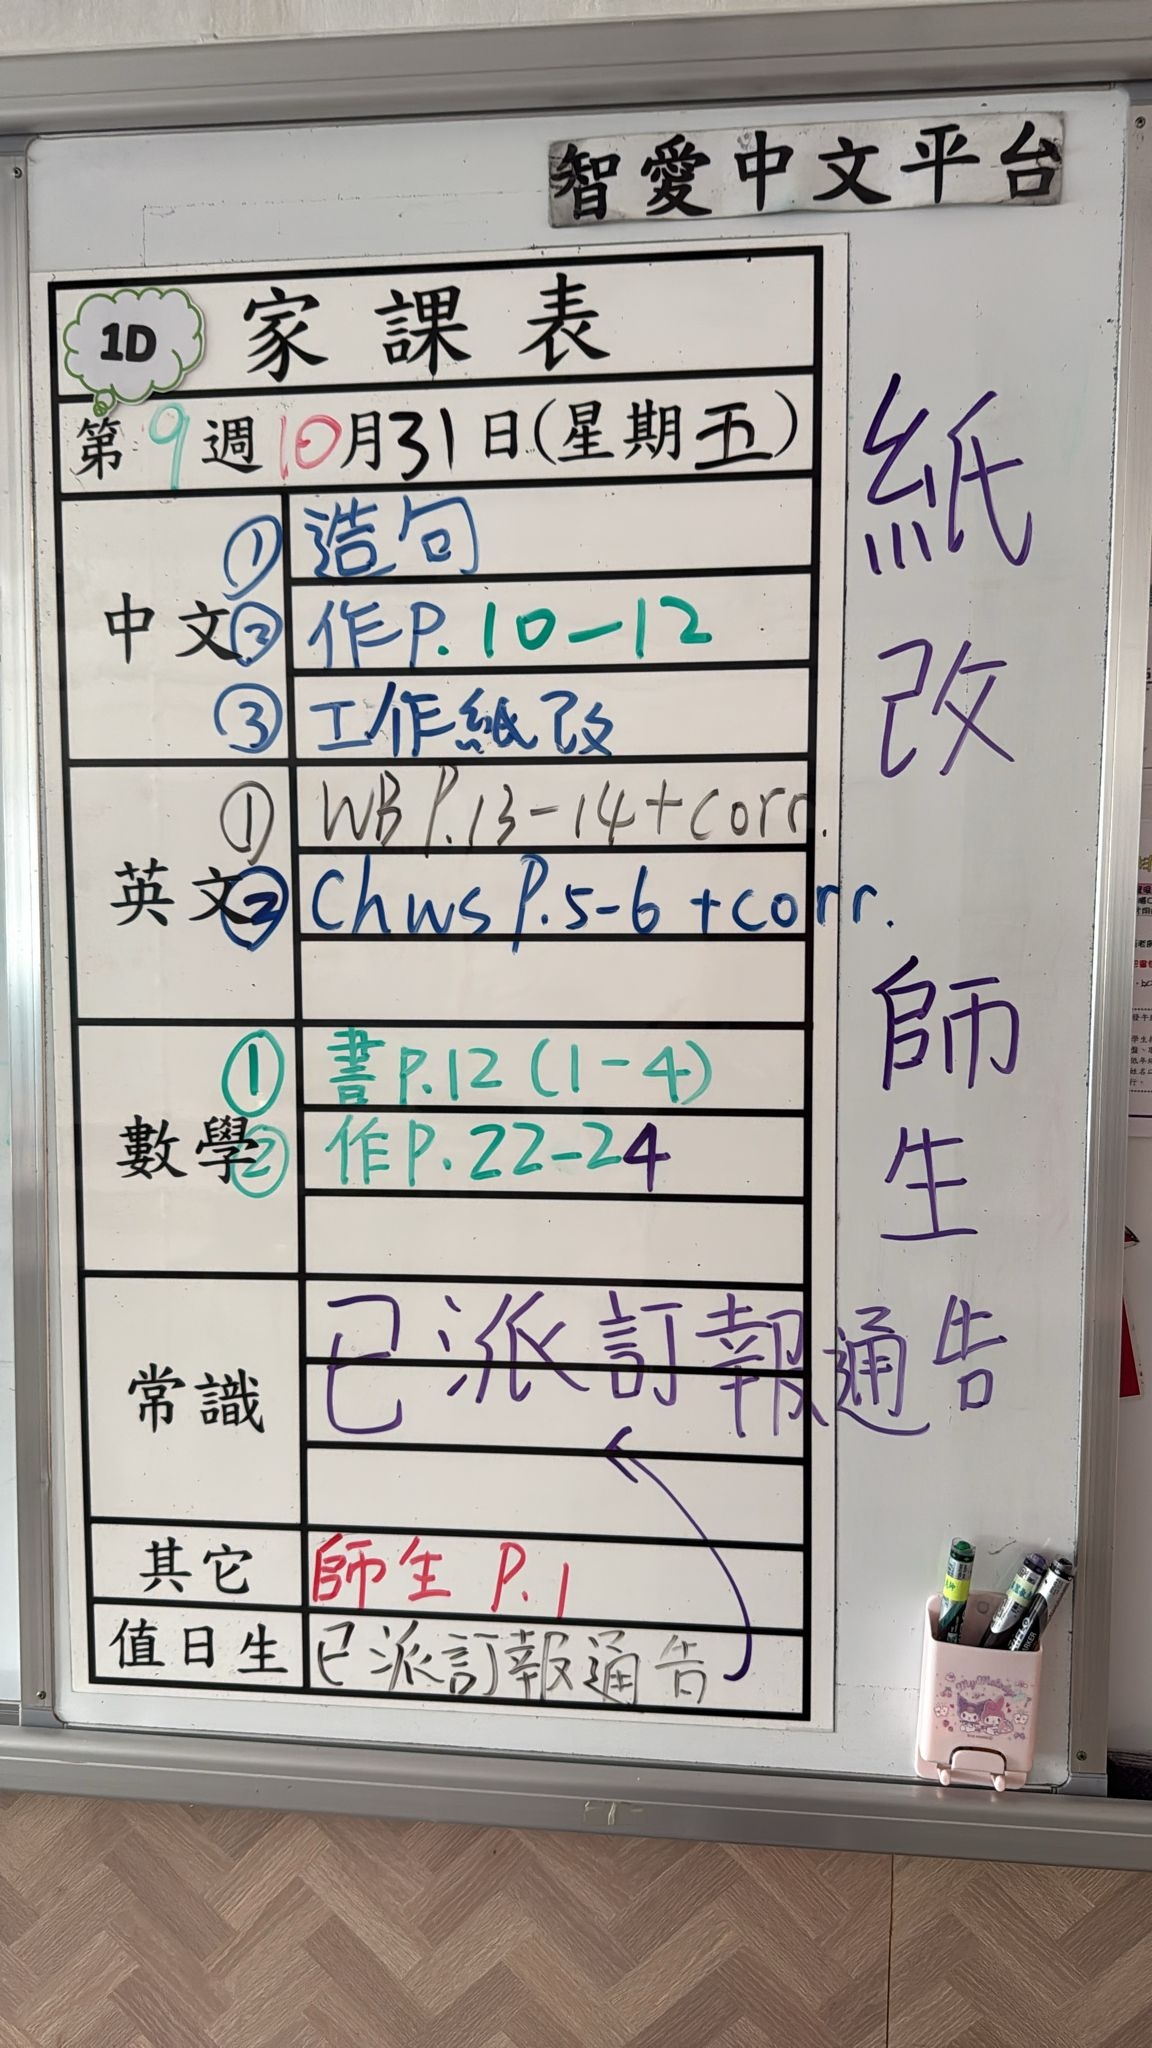 智愛中文平台
1D 家課表
第9週10月31日(星期五)
中文
① 造句
② 作P.10-12
③ 工作紙改
英文
① WB P.13-14+corr.
② Ch ws P.5-6 +corr.
數學
① 書P.12 (1-4)
② 作P.22-24
常識
已派訂報通告
其它 師生 P.1
值日生 已派訂報通告
紙
改
師
生